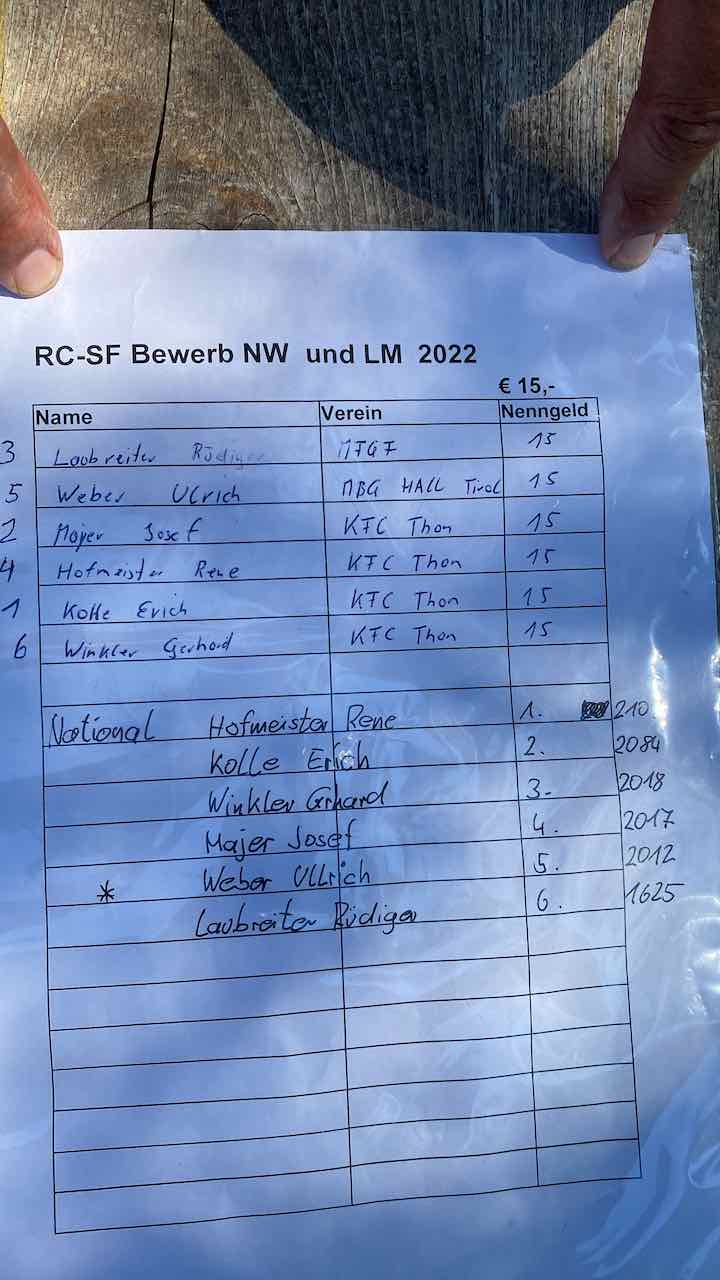 RC-SF Bewerb NW und LM 2022
€ 15,-
Name Verein Nenngeld
3 Laubreiter Rüdiger MFGF 15
5 Weber Ulrich MBG HALL Tirol 15
2 Majer Josef KFC Thon 15
4 Hofmeister Rene KFC Thon 15
1 Kolle Erich KFC Thon 15
6 Winkler Gerhard KFC Thon 15
National Hofmeister Rene 1. 210
Kolle Erich 2. 2084
Winkler Grhard 3. 2018
Majer Josef 4. 2017
* Weber Ullrich 5. 2012
Laubreiter Rüdiger 6. 1625